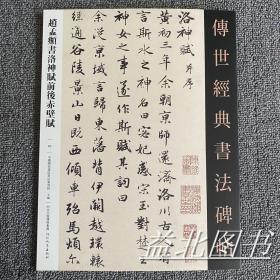 傳世經典書法碑帖
趙孟頫書洛神賦前後赤壁賦
洛神賦 并序
黄初三年余朝京師還濟洛川古人有
言斯水之神名曰宓妃感宋玉對楚王
神女之事遂作斯賦其詞曰
余從京域言歸東藩背伊闕越轘轅
經通谷陵景山日既西傾車殆馬煩尔
益北图书